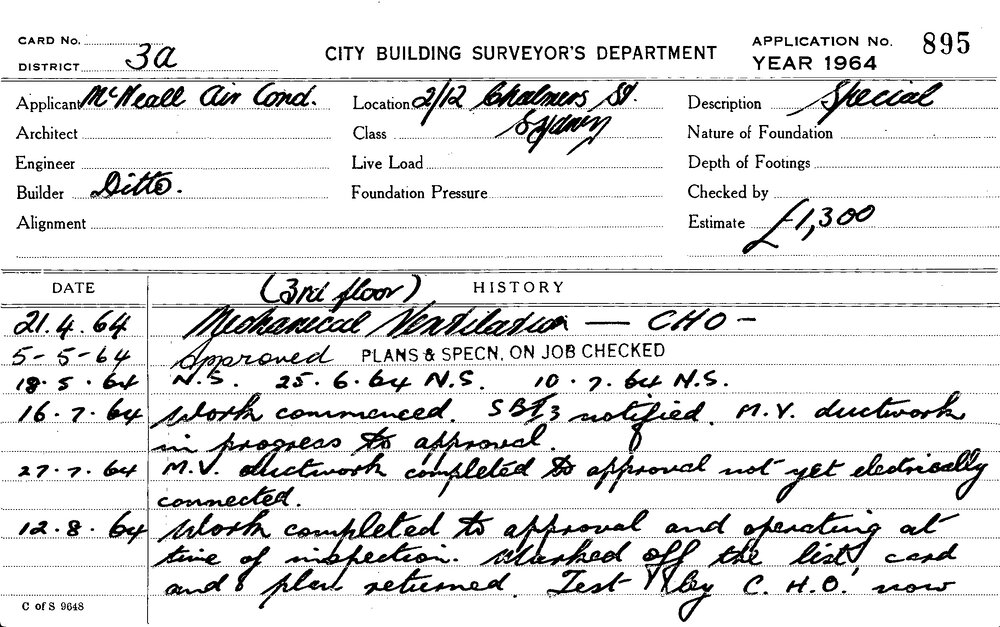 CARD No.
DISTRICT 3a
CITY BUILDING SURVEYOR'S DEPARTMENT
APPLICATION No. 895
YEAR 1964
Applicant McNeall Air Cond. Location 2/12 Chalmers St. Description Special
Architect Class Sydney Nature of Foundation
Engineer Live Load Depth of Footings
Builder Ditto. Foundation Pressure Checked by
Alignment Estimate £1,300
DATE (3rd floor) HISTORY
21.4.64 Mechanical Ventilation — CHO —
5-5-64 Approved PLANS & SPECN. ON JOB CHECKED
18.5.64 N.S. 25.6.64 N.S. 10.7.64 N.S.
16.7.64 Work commenced. notified. M.V. ductwork
in progress to approval.
27.7.64 M.V. ductwork completed to approval not yet electrically
connected.
12.8.64 Work completed to approval and operating at
time of inspection. Marked off the list, card
and plan returned. Test by C.H.O. now
C of S 9648